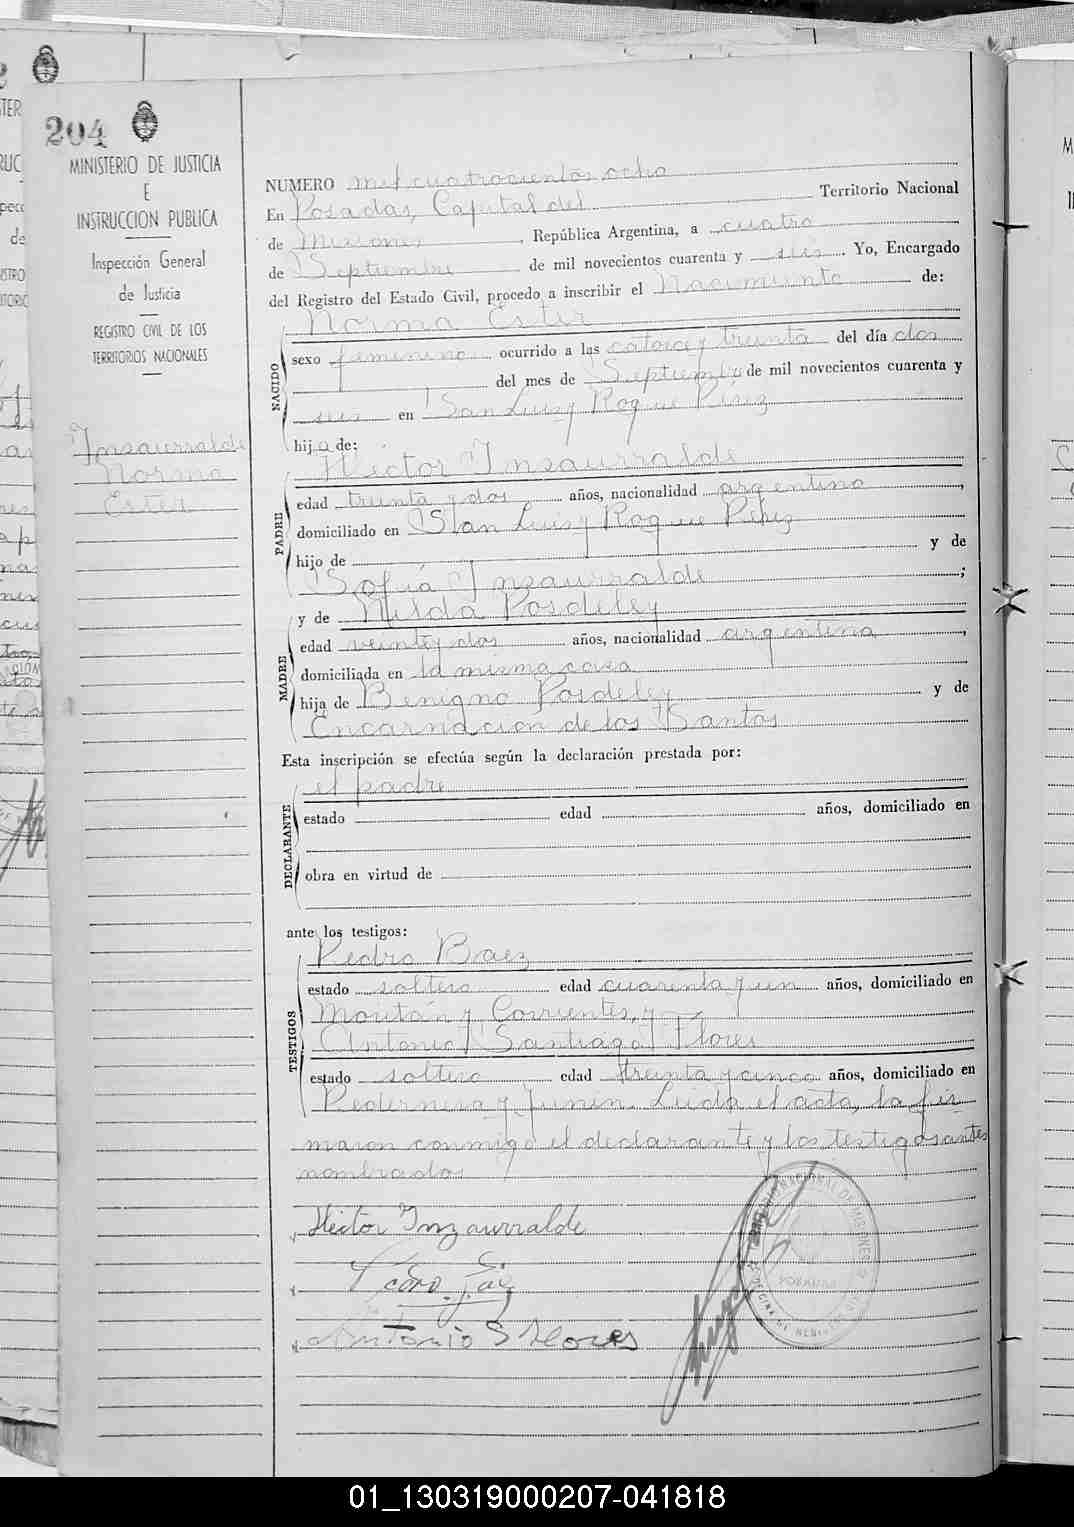 204
MINISTERIO DE JUSTICIA
E
INSTRUCCION PUBLICA
Inspección General
de Justicia
REGISTRO CIVIL DE LOS
TERRITORIOS NACIONALES
Inzaurralde
Norma
Ester
NUMERO mil cuatrocientos ocho
En Posadas, Capital del Territorio Nacional
de Misiones, República Argentina, a cuatro
de Septiembre de mil novecientos cuarenta y seis. Yo, Encargado
del Registro del Estado Civil, procedo a inscribir el Nacimiento de:
NACIDO
Norma Ester
sexo femenino ocurrido a las catorce y treinta del día dos
del mes de Septiembre de mil novecientos cuarenta y
seis en San Luis y Roque Pérez
hija de:
PADRE
Héctor Inzaurralde
edad treinta y dos años, nacionalidad argentino,
domiciliado en San Luis y Roque Pérez
hijo de y de
Sofía Inzaurralde;
MADRE
y de Nilda Posdeley
edad veinte y dos años, nacionalidad argentina,
domiciliada en la misma casa
hija de Benigno Posdeley y de
Encarnacion de los Santos
Esta inscripción se efectúa según la declaración prestada por:
DECLARANTE
el padre
estado edad años, domiciliado en
obra en virtud de
ante los testigos:
TESTIGOS
Pedro Baez
estado soltero edad cuarenta y un años, domiciliado en
y Corrientes, y
Antonio Santiago Flores
estado soltero edad treinta y cinco años, domiciliado en
Pedernera y Junín. Leída el acta, la fir-
maron conmigo el declarante y los testigos antes
nombrados
Héctor Inzaurralde
Antonio S Flores
POSADAS
01_130319000207-041818